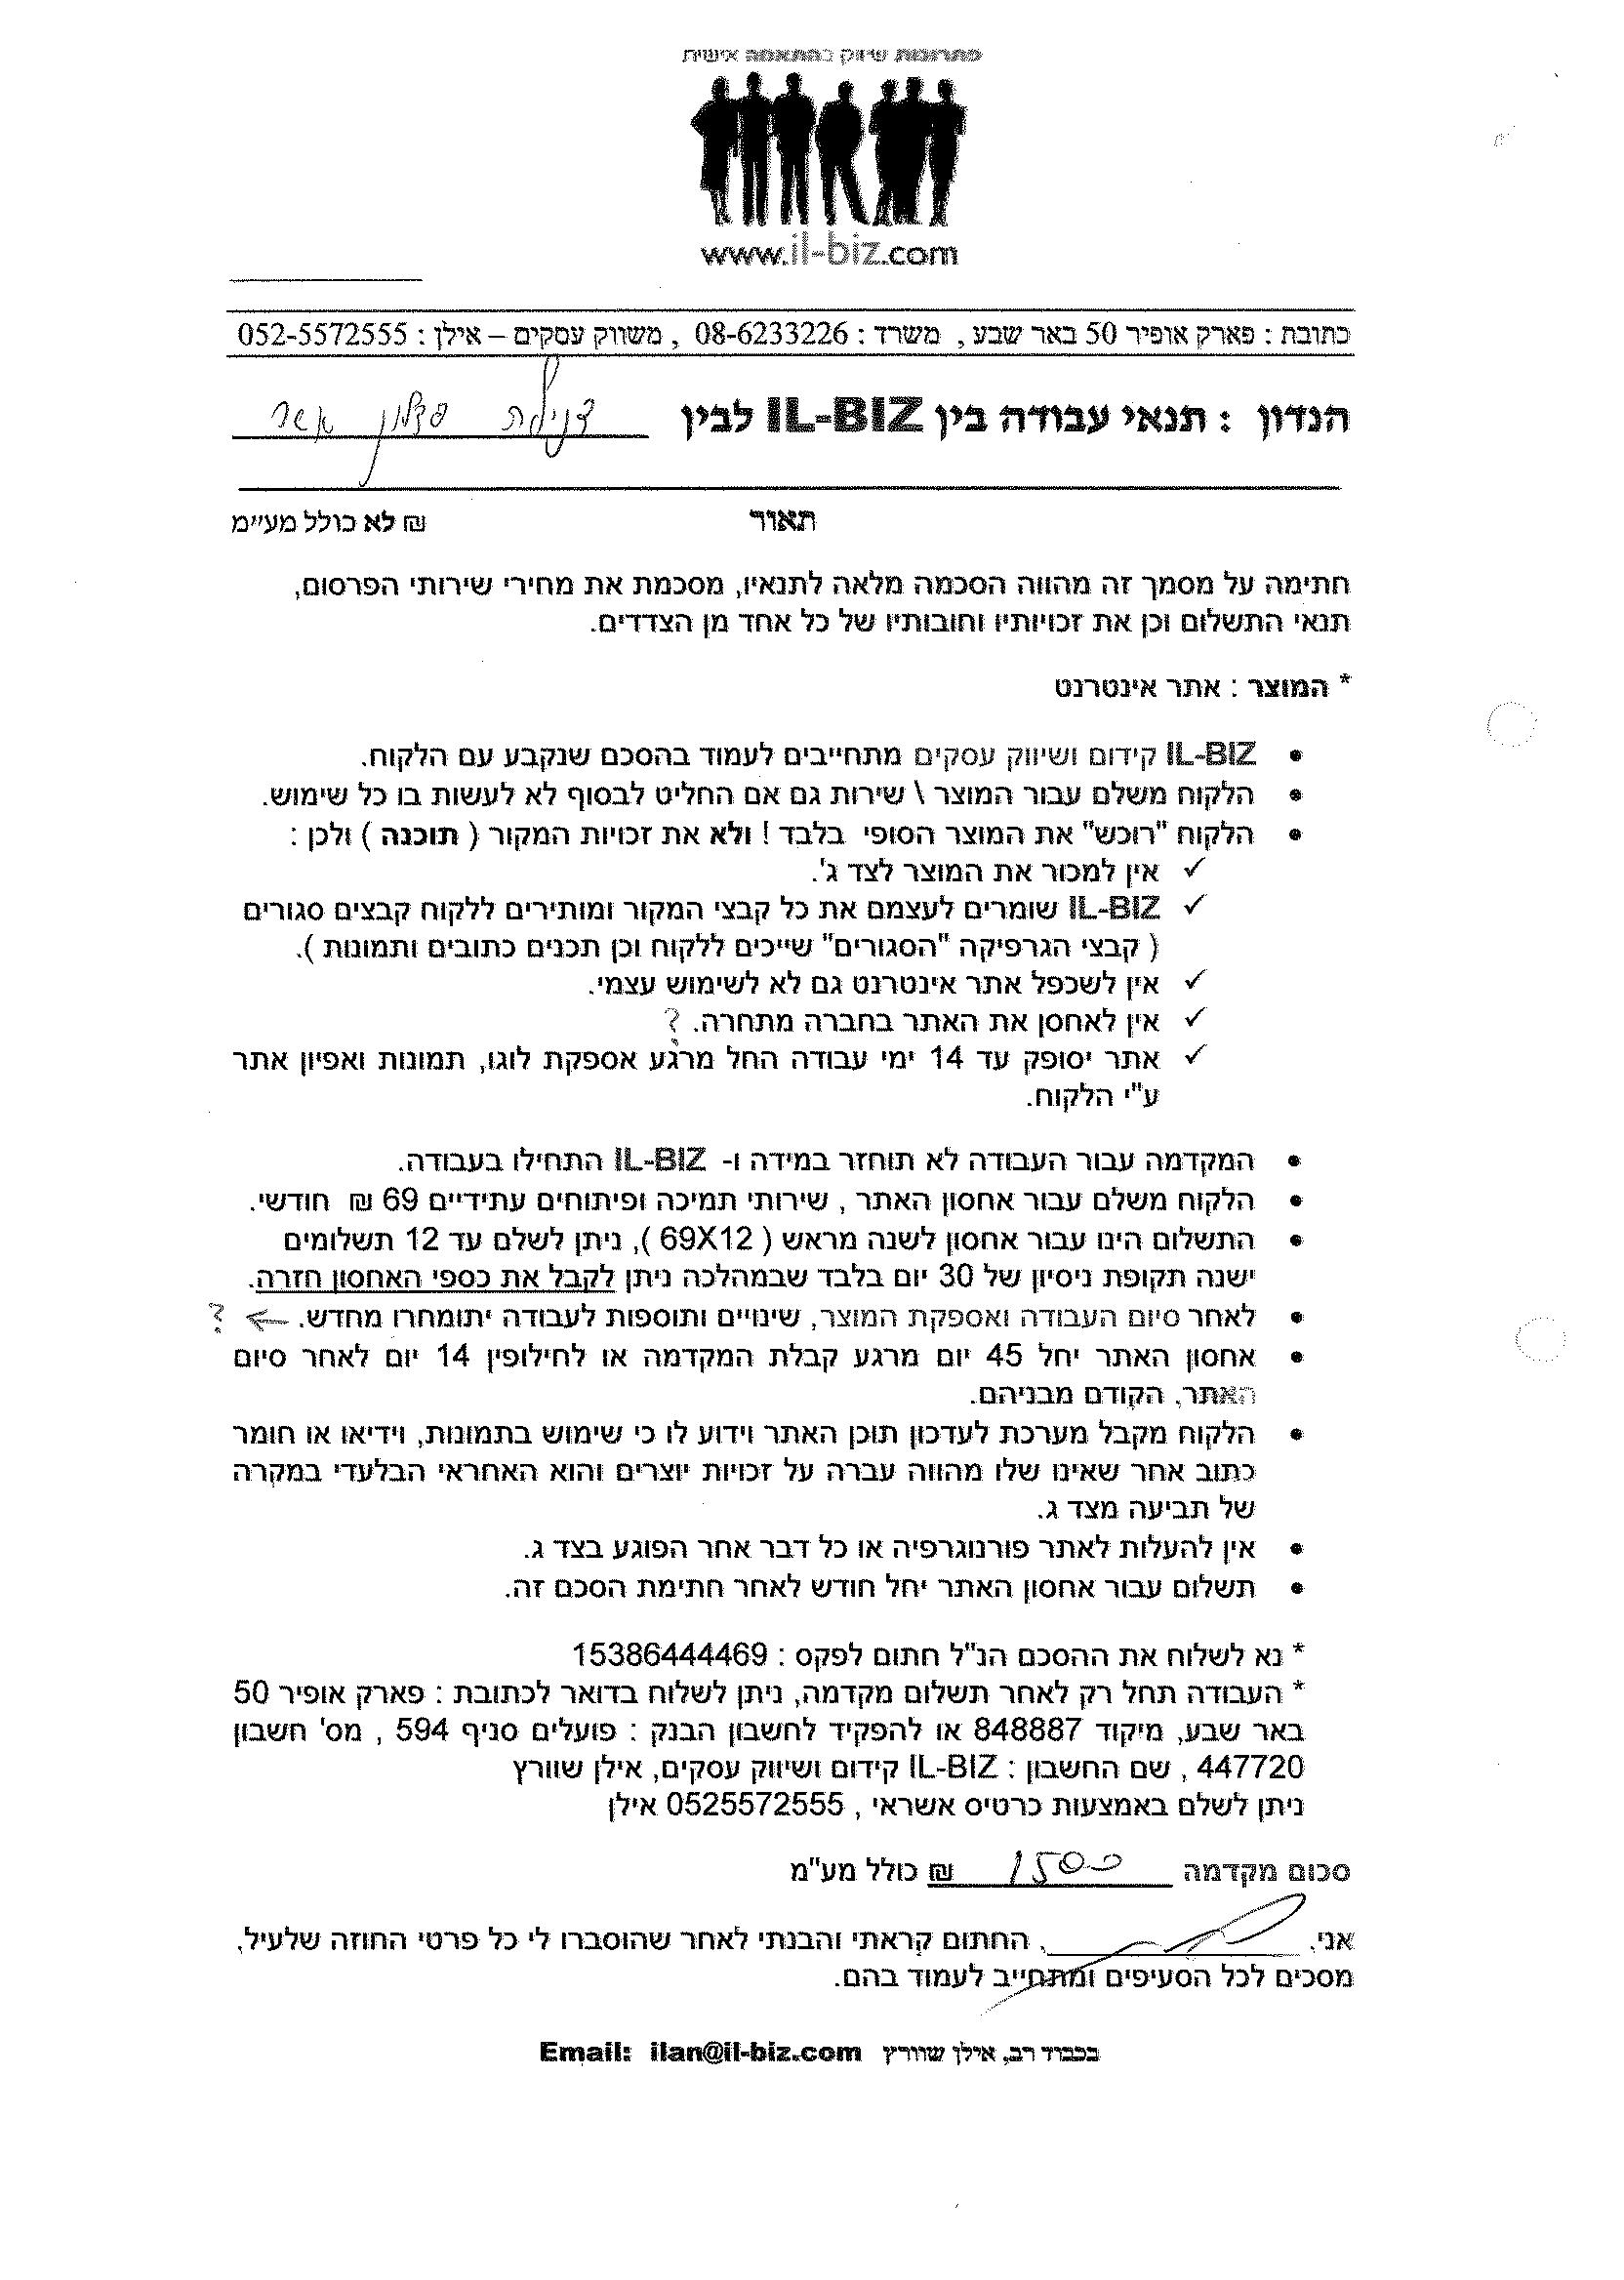 פתרונות שיווק בהתאמה אישית
www.il-biz.com
כתובת : פארק אופיר 50 באר שבע , משרד : 08-6233226 , משווק עסקים – אילן : 052-5572555
הנדון : תנאי עבודה בין IL-BIZ לבין
תאור ₪ לא כולל מע״מ
חתימה על מסמך זה מהווה הסכמה מלאה לתנאיו, מסכמת את מחירי שירותי הפרסום,
תנאי התשלום וכן את זכויותיו וחובותיו של כל אחד מן הצדדים.
* המוצר : אתר אינטרנט
• IL-BIZ קידום ושיווק עסקים מתחייבים לעמוד בהסכם שנקבע עם הלקוח.
• הלקוח משלם עבור המוצר \ שירות גם אם החליט לבסוף לא לעשות בו כל שימוש.
• הלקוח "רוכש" את המוצר הסופי בלבד ! ולא את זכויות המקור ( תוכנה ) ולכן :
✓ אין למכור את המוצר לצד ג'.
✓ IL-BIZ שומרים לעצמם את כל קבצי המקור ומותירים ללקוח קבצים סגורים
( קבצי הגרפיקה "הסגורים" שייכים ללקוח וכן תכנים כתובים ותמונות ).
✓ אין לשכפל אתר אינטרנט גם לא לשימוש עצמי.
✓ אין לאחסן את האתר בחברה מתחרה. ?
✓ אתר יסופק עד 14 ימי עבודה החל מרגע אספקת לוגו, תמונות ואפיון אתר
ע"י הלקוח.
• המקדמה עבור העבודה לא תוחזר במידה ו- IL-BIZ התחילו בעבודה.
• הלקוח משלם עבור אחסון האתר , שירותי תמיכה ופיתוחים עתידיים 69 ₪ חודשי.
• התשלום הינו עבור אחסון לשנה מראש ( 69X12 ), ניתן לשלם עד 12 תשלומים
ישנה תקופת ניסיון של 30 יום בלבד שבמהלכה ניתן לקבל את כספי האחסון חזרה.
• לאחר סיום העבודה ואספקת המוצר, שינויים ותוספות לעבודה יתומחרו מחדש. ← ?
• אחסון האתר יחל 45 יום מרגע קבלת המקדמה או לחילופין 14 יום לאחר סיום
האתר, הקודם מבניהם.
• הלקוח מקבל מערכת לעדכון תוכן האתר וידוע לו כי שימוש בתמונות, וידיאו או חומר
כתוב אחר שאינו שלו מהווה עברה על זכויות יוצרים והוא האחראי הבלעדי במקרה
של תביעה מצד ג.
• אין להעלות לאתר פורנוגרפיה או כל דבר אחר הפוגע בצד ג.
• תשלום עבור אחסון האתר יחל חודש לאחר חתימת הסכם זה.
* נא לשלוח את ההסכם הנ"ל חתום לפקס : 15386444469
* העבודה תחל רק לאחר תשלום מקדמה, ניתן לשלוח בדואר לכתובת : פארק אופיר 50
באר שבע, מיקוד 848887 או להפקיד לחשבון הבנק : פועלים סניף 594 , מס' חשבון
447720 , שם החשבון : IL-BIZ קידום ושיווק עסקים, אילן שוורץ
ניתן לשלם באמצעות כרטיס אשראי , 0525572555 אילן
סכום מקדמה 1500 ₪ כולל מע"מ
אני, , החתום קראתי והבנתי לאחר שהוסברו לי כל פרטי החוזה שלעיל,
מסכים לכל הסעיפים ומתחייב לעמוד בהם.
בכבוד רב, אילן שוורץ Email: ilan@il-biz.com